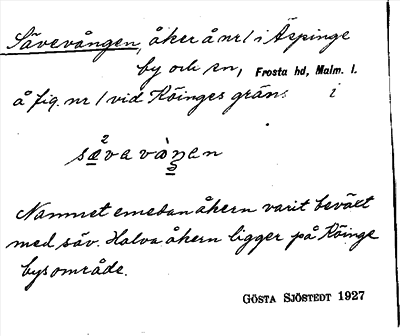 Sävevången, åker å nr 1 i Äspinge
by och sn, Frosta hd, Malm. l.
å fig. nr 1 vid Köinges gräns i
sævavàŋen
Namnet emedan åkern varit beväxt
med säv. Halva åkern ligger på Köinge
bysområde.
GÖSTA SJÖSTEDT 1927